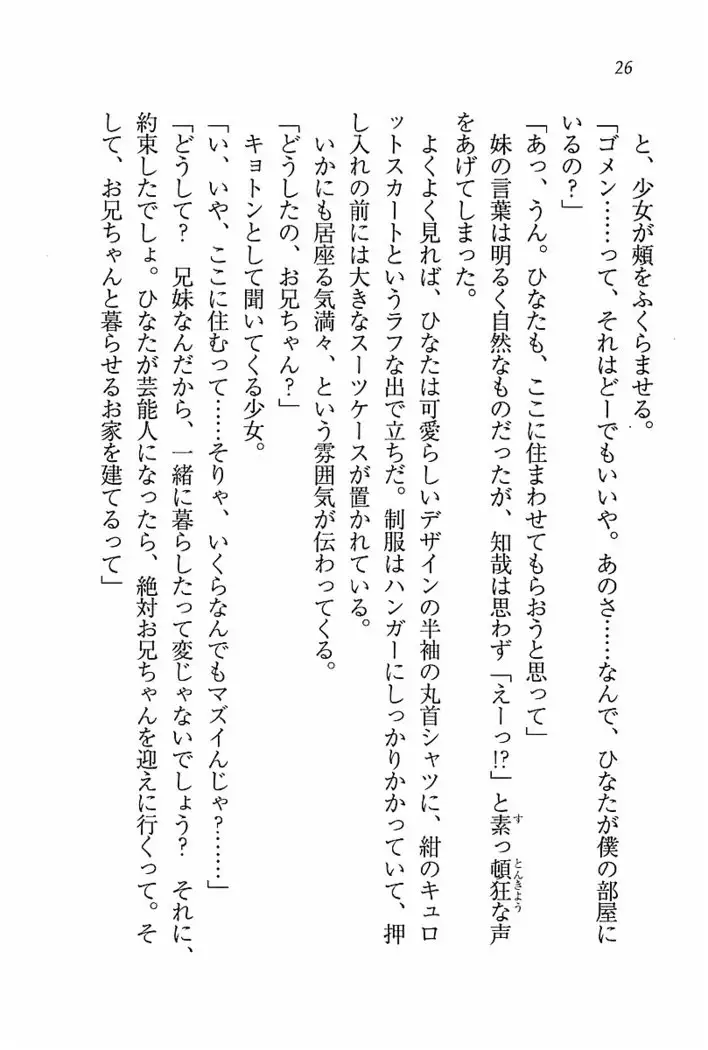 26
と、少女が頰をふくらませる。
「ゴメン……って、それはどーでもいいや。あのさ……なんで、ひなたが僕の部屋に
いるの？」
「あっ、うん。ひなたも、ここに住まわせてもらおうと思って」
妹の言葉は明るく自然なものだったが、知哉は思わず「えーっ!?」と素っ頓狂な声
す
とんきょう
をあげてしまった。
よくよく見れば、ひなたは可愛らしいデザインの半袖の丸首シャツに、紺のキュロ
ットスカートというラフな出で立ちだ。制服はハンガーにしっかりかかっていて、押
し入れの前には大きなスーツケースが置かれている。
いかにも居座る気満々、という雰囲気が伝わってくる。
「どうしたの、お兄ちゃん？」
キョトンとして聞いてくる少女。
「い、いや、ここに住むって……そりゃ、いくらなんでもマズイんじゃ？………」
「どうして？　兄妹なんだから、一緒に暮らしたって変じゃないでしょう？　それに、
約束したでしょ。ひなたが芸能人になったら、絶対お兄ちゃんを迎えに行くって。そ
して、お兄ちゃんと暮らせるお家を建てるって」